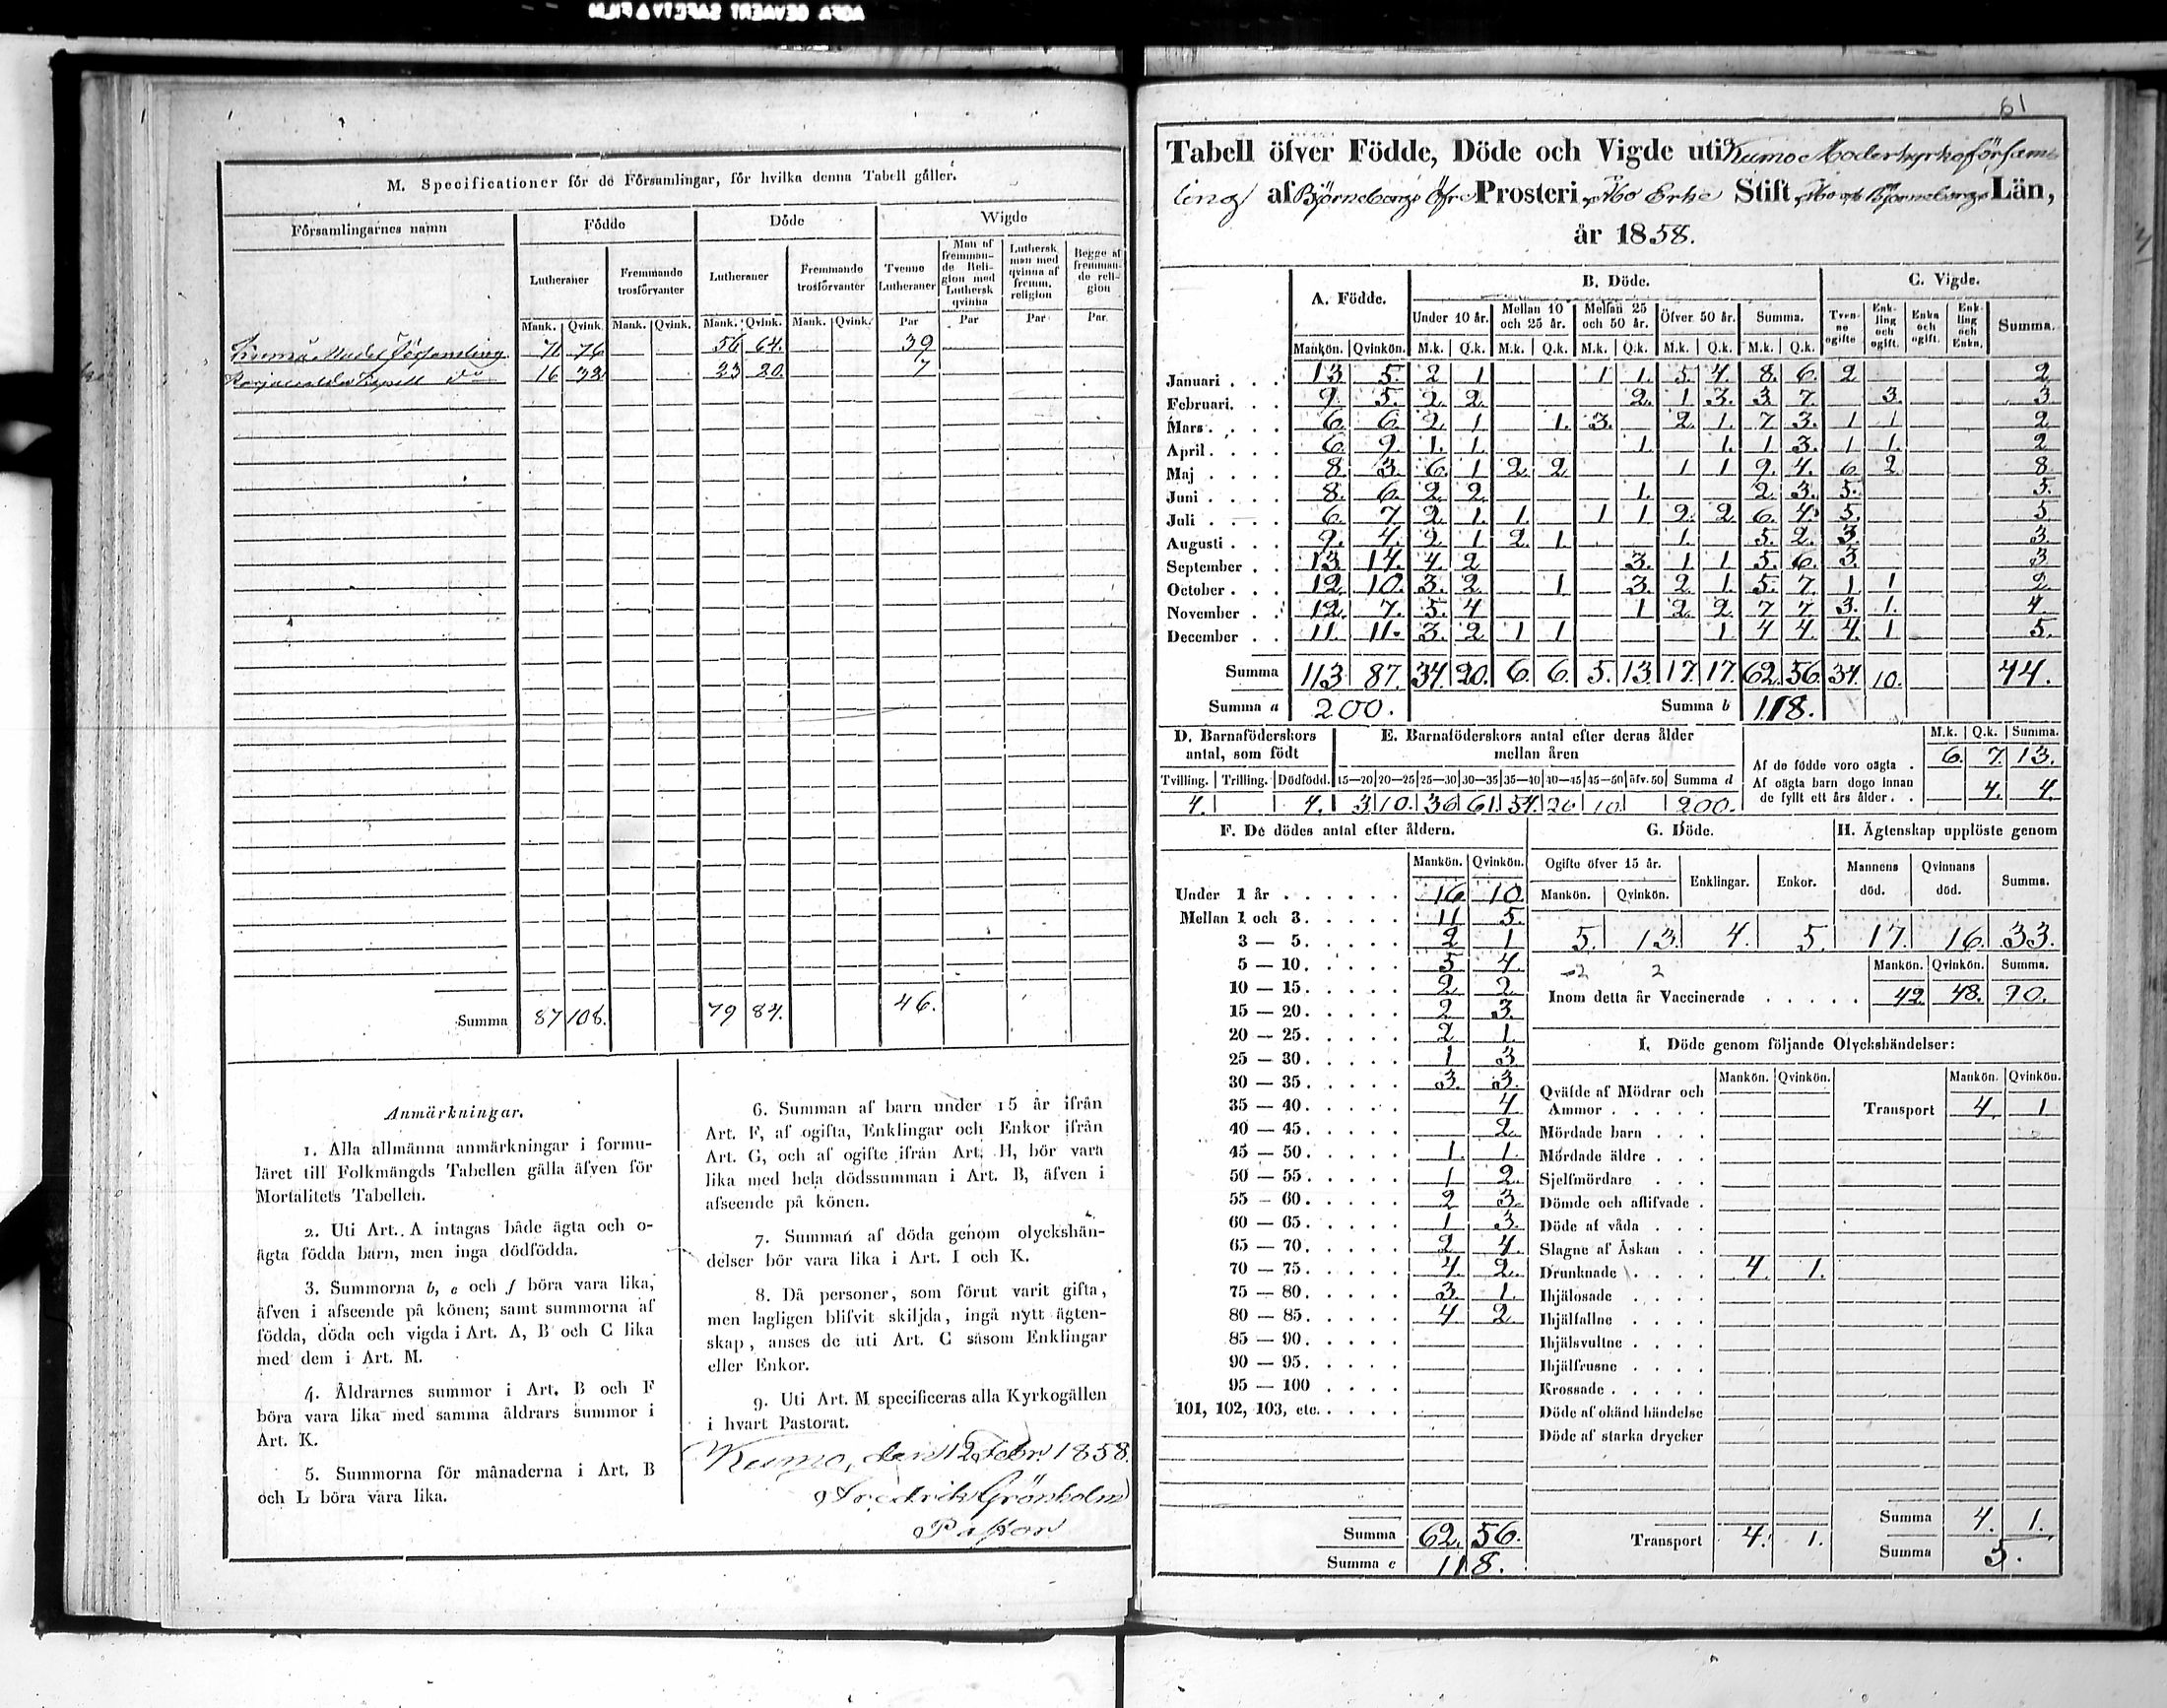 M. Specificationer för de Församlingar, för hvilka denna Tabell gäller.
Församlingarnes namn | Födde | Döde | Wigde
Lutheraner | Fremmande trosförvanter | Lutheraner | Fremmande trosförvanter | Tvenne Lutheraner | Man af fremmande Religion med Luthersk qvinna | Luthersk man med qvinna af fremm. religion | Begge af fremmande religion
Mank. | Qvink. | Mank. | Qvink. | Mank. | Qvink. | Mank. | Qvink. | Par | Par | Par | Par
Kumå Moder Församling 71 76 56 64. 39
Kapell do 16 32 23 20. 7
Summa 87 108. 79 84. 46.
Anmärkningar.
1. Alla allmänna anmärkningar i formu-
läret till Folkmängds Tabellen gälla äfven för
Mortalitets Tabellen.
2. Uti Art. A intagas både ägta och o-
ägta födda barn, men inga dödfödda.
3. Summorna b, e och f böra vara lika,
äfven i afseende på könen; samt summorna af
födda, döda och vigda i Art. A, B och C lika
med dem i Art. M.
4. Åldrarnes summor i Art. B och F
böra vara lika med samma åldrars summor i
Art. K.
5. Summorna för månaderna i Art. B
och L böra vara lika.
6. Summan af barn under 15 år ifrån
Art. F, af ogifta, Enklingar och Enkor ifrån
Art. G, och af ogifte ifrån Art. H, bör vara
lika med hela dödssumman i Art. B, äfven i
afseende på könen.
7. Summan af döda genom olyckshän-
delser bör vara lika i Art. I och K.
8. Då personer, som förut varit gifta,
men lagligen blifvit skiljda, ingå nytt ägten-
skap, anses de uti Art. C såsom Enklingar
eller Enkor.
9. Uti Art. M specificeras alla Kyrkogällen
i hvart Pastorat.
Kumo, den 12 Febr. 1858.
Fredrik Grönholm
Pastor
61
Tabell öfver Födde, Döde och Vigde uti Kumo Moderkyrkoförsam-
ling af Björneborgs Öfre Prosteri, Åbo Erke Stift, Åbo och Björneborgs Län,
år 1858.
A. Födde. | B. Döde. | C. Vigde.
Under 10 år. | Mellan 10 och 25 år. | Mellan 25 och 50 år. | Öfver 50 år. | Summa. | Tvenne ogifte | Enkling och ogift. | Enka och ogift. | Enkling och Enka. | Summa.
Mankön. | Qvinkön. | M.k. | Q.k. | M.k. | Q.k. | M.k. | Q.k. | M.k. | Q.k. | M.k. | Q.k.
Januari . . . 13 5. 2 1 1 1. 5. 4. 8. 6. 2 2
Februari. . . 9. 5. 2. 2. 2. 1 3. 3 7. 3. 3
Mars . . . . 6. 6. 2 1 1. 3. 2. 1. 7 3. 1 1 2
April . . . . 6. 9. 1. 1. 1. 1. 1 3. 1 1. 2
Maj . . . . 8. 3. 6. 1 2. 2. 1 1 9. 4. 6 2. 8
Juni . . . . 8. 6. 2 2 1. 2. 3. 5. 5.
Juli . . . . 6. 7 2 1. 1. 1 1 2. 2. 6. 4. 5. 5
Augusti . . . 9. 4. 2 1 2. 1. 1. 5. 2. 3 3
September . . 13 14. 4 2 3. 1 1 5. 6. 3 3
October . . . 12 10. 3. 2 1 3. 2. 1. 5. 7. 1. 1 2
November . . 12. 7. 5. 4 1 2 2 7 7. 3. 1. 4
December . . 11. 11. 3. 2 1 1 1. 4 4. 4. 1 5.
Summa 113 87. 34. 20. 6. 6. 5. 13. 17. 17. 62. 56. 34. 10. 44.
Summa a 200. Summa b 118.
D. Barnaföderskors antal, som födt | E. Barnaföderskors antal efter deras ålder mellan åren | M.k. | Q.k. | Summa.
Tvilling. | Trilling. | Dödfödd. | 15—20 | 20—25 | 25—30 | 30—35 | 35—40 | 40—45 | 45—50 | öfv. 50 | Summa d
4. 4. 3 10. 36 61. 54. 26 10. 200.
Af de födde voro oägta . 6. 7. 13.
Af oägta barn dogo innan de fyllt ett års ålder. . 4. 4.
F. De dödes antal efter åldern.
Mankön. | Qvinkön.
Under 1 år . . . . . . 16 10
Mellan 1 och 3. . . . . 11 5.
3 — 5. . . . . 2 1
5 — 10. . . . . 5 4.
10 — 15. . . . . 2 2
15 — 20. . . . . 2 3.
20 — 25. . . . . 2 1.
25 — 30. . . . . 1 3
30 — 35. . . . . 3. 3.
35 — 40. . . . . 4
40 — 45. . . . . 2.
45 — 50. . . . . 1. 1.
50 — 55. . . . . 1 2.
55 — 60. . . . . 2 3.
60 — 65. . . . . 1 3.
65 — 70. . . . . 2 4.
70 — 75. . . . . 4. 2.
75 — 80. . . . . 3. 1.
80 — 85. . . . . 4 2.
85 — 90. . . . .
90 — 95. . . . .
95 — 100 . . . .
101, 102, 103, etc. . . . .
Summa 62. 56.
Summa e 118.
G. Döde.
Ogifte öfver 15 år. | Enklingar. | Enkor.
Mankön. | Qvinkön.
5. 13. 4. 5.
2 2
H. Ägtenskap upplöste genom
Mannens död. | Qvinnans död. | Summa.
17. 16. 33.
Mankön. | Qvinkön. | Summa.
Inom detta år Vaccinerade . . . . . 42. 48. 90.
I. Döde genom följande Olyckshändelser:
Mankön. | Qvinkön. | Mankön. | Qvinkön.
Qväfde af Mödrar och
Ammor . . . . . Transport 4. 1
Mördade barn . . .
Mördade äldre . . .
Sjelfmördare . . .
Dömde och aflifvade .
Döde af våda . . .
Slagne af Åskan . .
Drunknade . . . . 4. 1.
Ihjälosade . . . .
Ihjälfallne . . . .
Ihjälsvultne . . . .
Ihjälfrusne . . . .
Krossade . . . . .
Döde af okänd händelse
Döde af starka drycker
Summa 4. 1.
Transport 4. 1.
Summa 5.